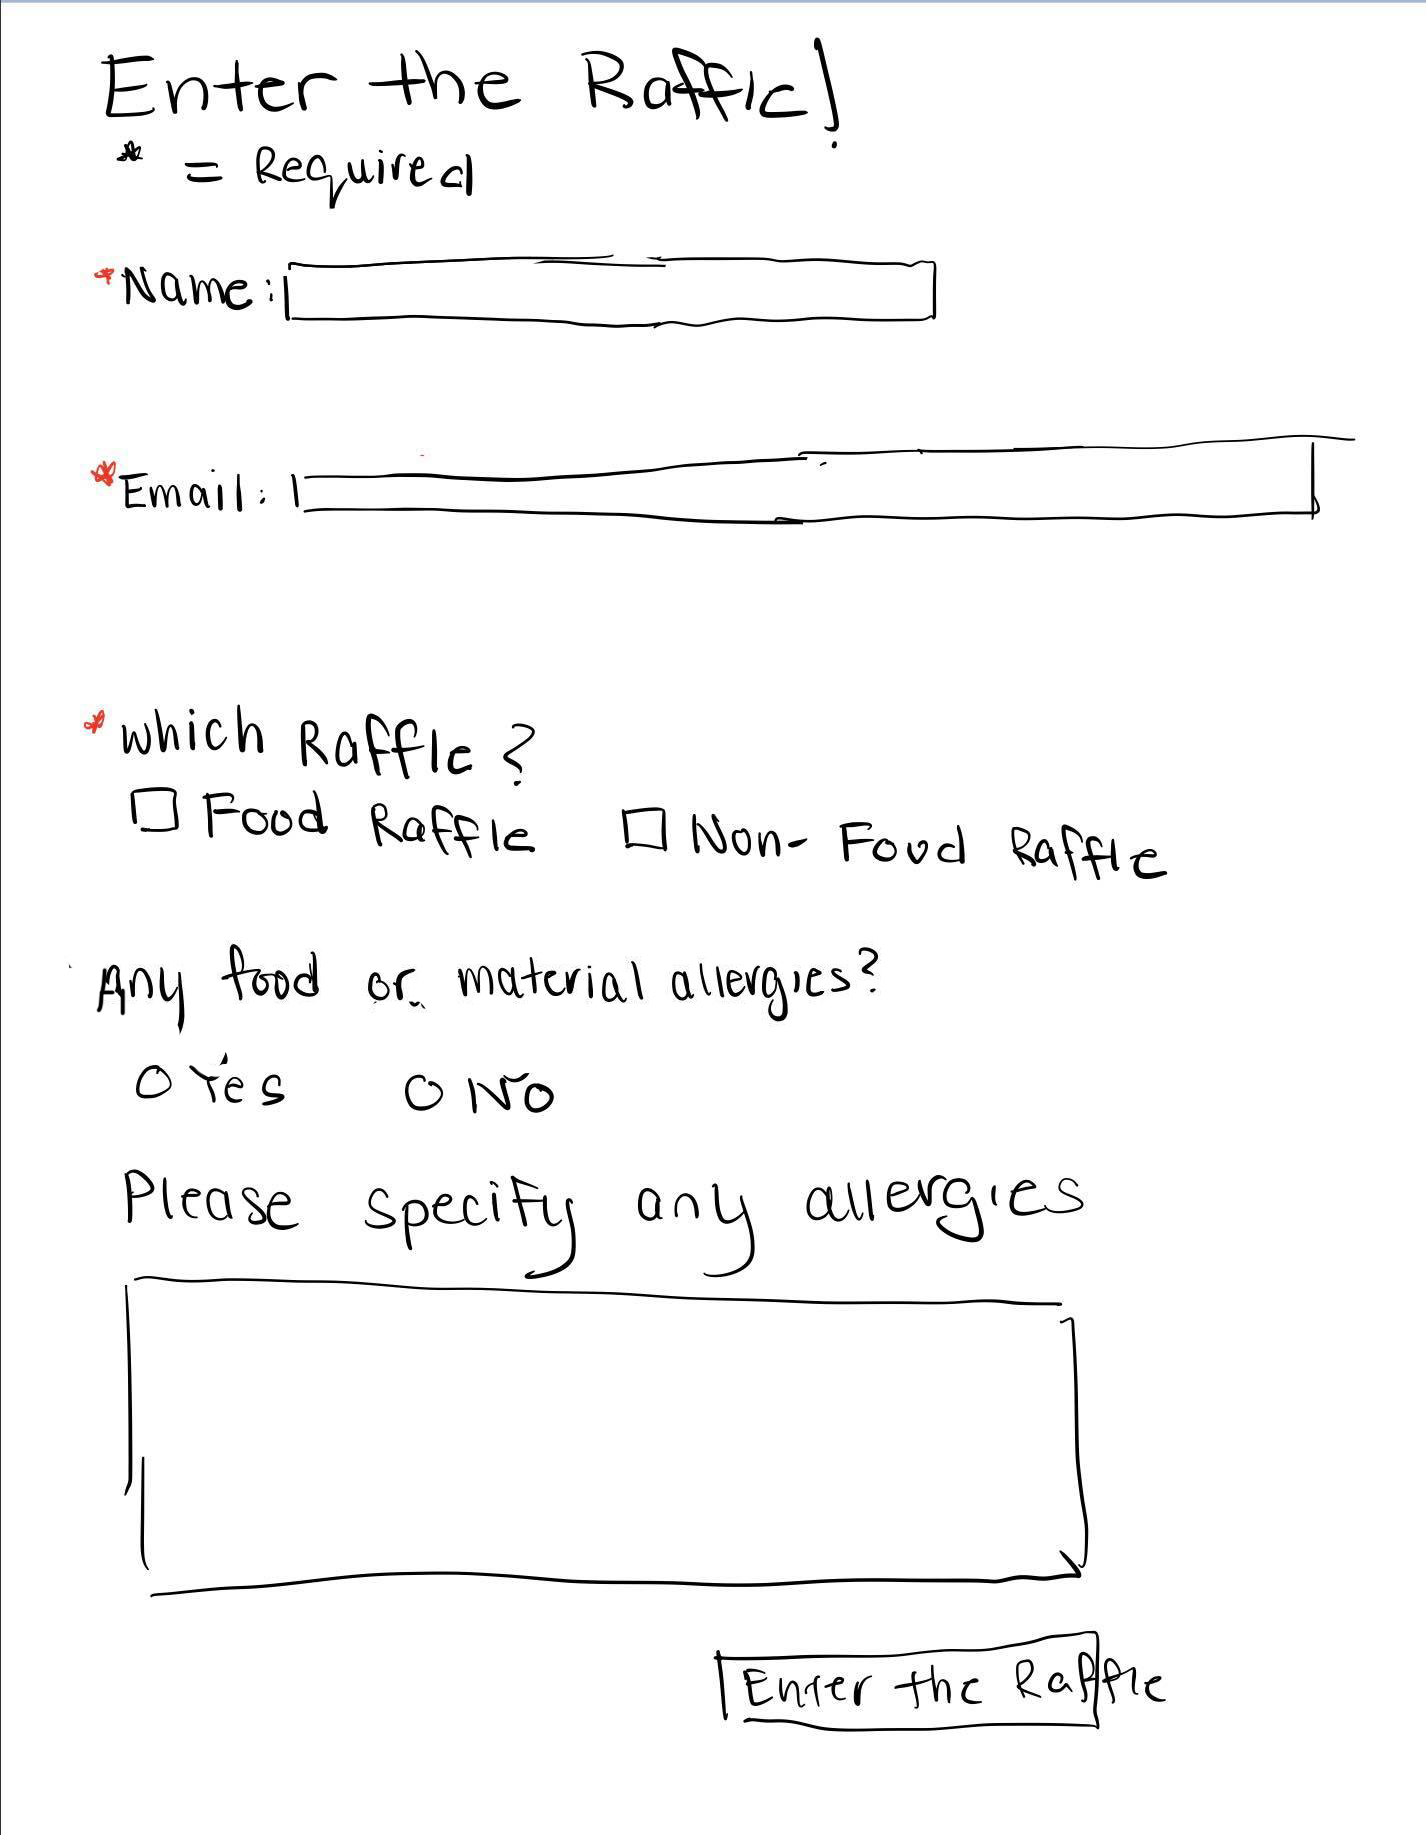 Enter the Raffle!
* = Required
*Name:
*Email:
*which Raffle?
Food Raffle Non-Food Raffle
Any food or material allergies?
Yes No
Please specify any allergies
Enter the Raffle